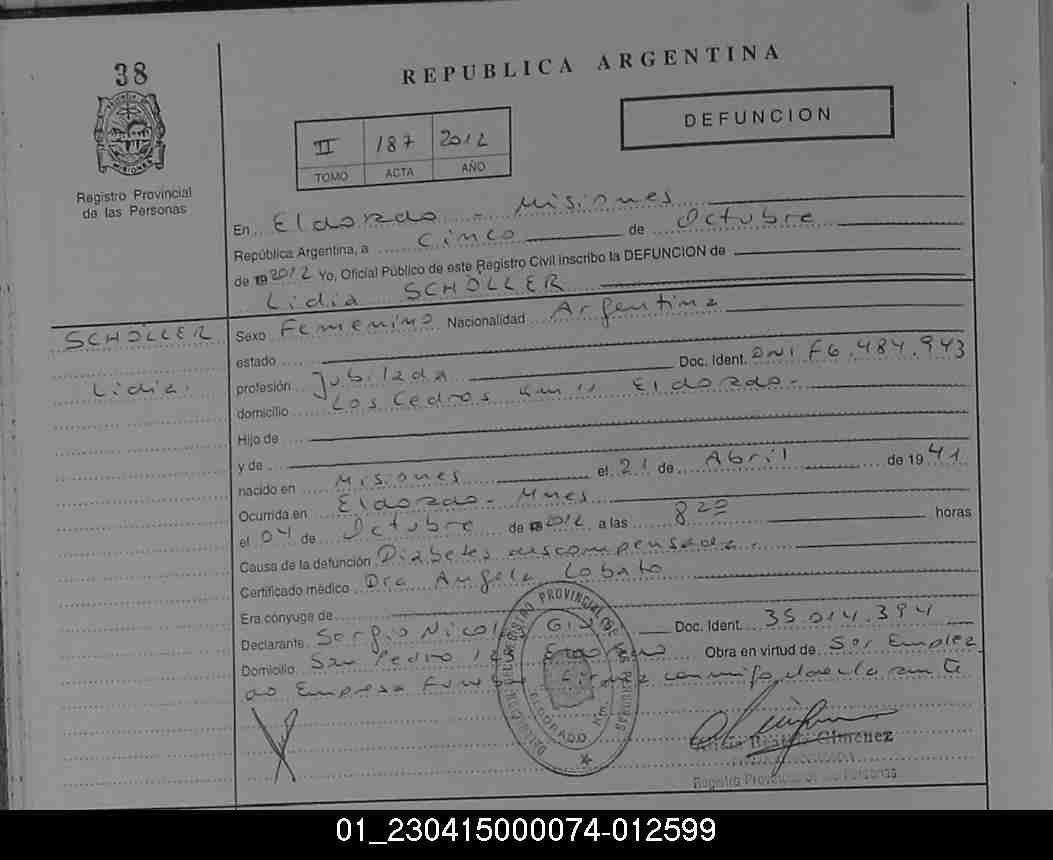 38
REPUBLICA ARGENTINA
DEFUNCION
II 187 2012
TOMO ACTA AÑO
MISIONES
Registro Provincial
de las Personas
En Eldorado - Misiones
República Argentina, a Cinco de Octubre
de 19 2012 Yo, Oficial Público de este Registro Civil inscribo la DEFUNCION de
Lidia SCHÖLLER
SCHÖLLER
Lidia.
Sexo Femenino Nacionalidad Argentina
estado
profesión Jubilada Doc. Ident. DNI F6.484.943
domicilio Los Cedros km 11 Eldorado.
Hijo de
y de
nacido en Misiones el 21 de Abril de 1941
Ocurrida en Eldorado - Mnes
el 04 de Octubre de 19 2012 a las 8 horas
Causa de la defunción Diabetes descompensada.
Certificado médico Dra Angela Lobato
Era cónyuge de
Declarante Sergio Nicol Doc. Ident. 35.014.394
Domicilio San Pedro Eldorado Obra en virtud de Ser Emplea
do Empresa Firma conmigo
REGISTRO PROVINCIAL DE LAS PERSONAS
ELDORADO
Beatriz Gimenez
Registro Provincial de las Personas
01_230415000074-012599